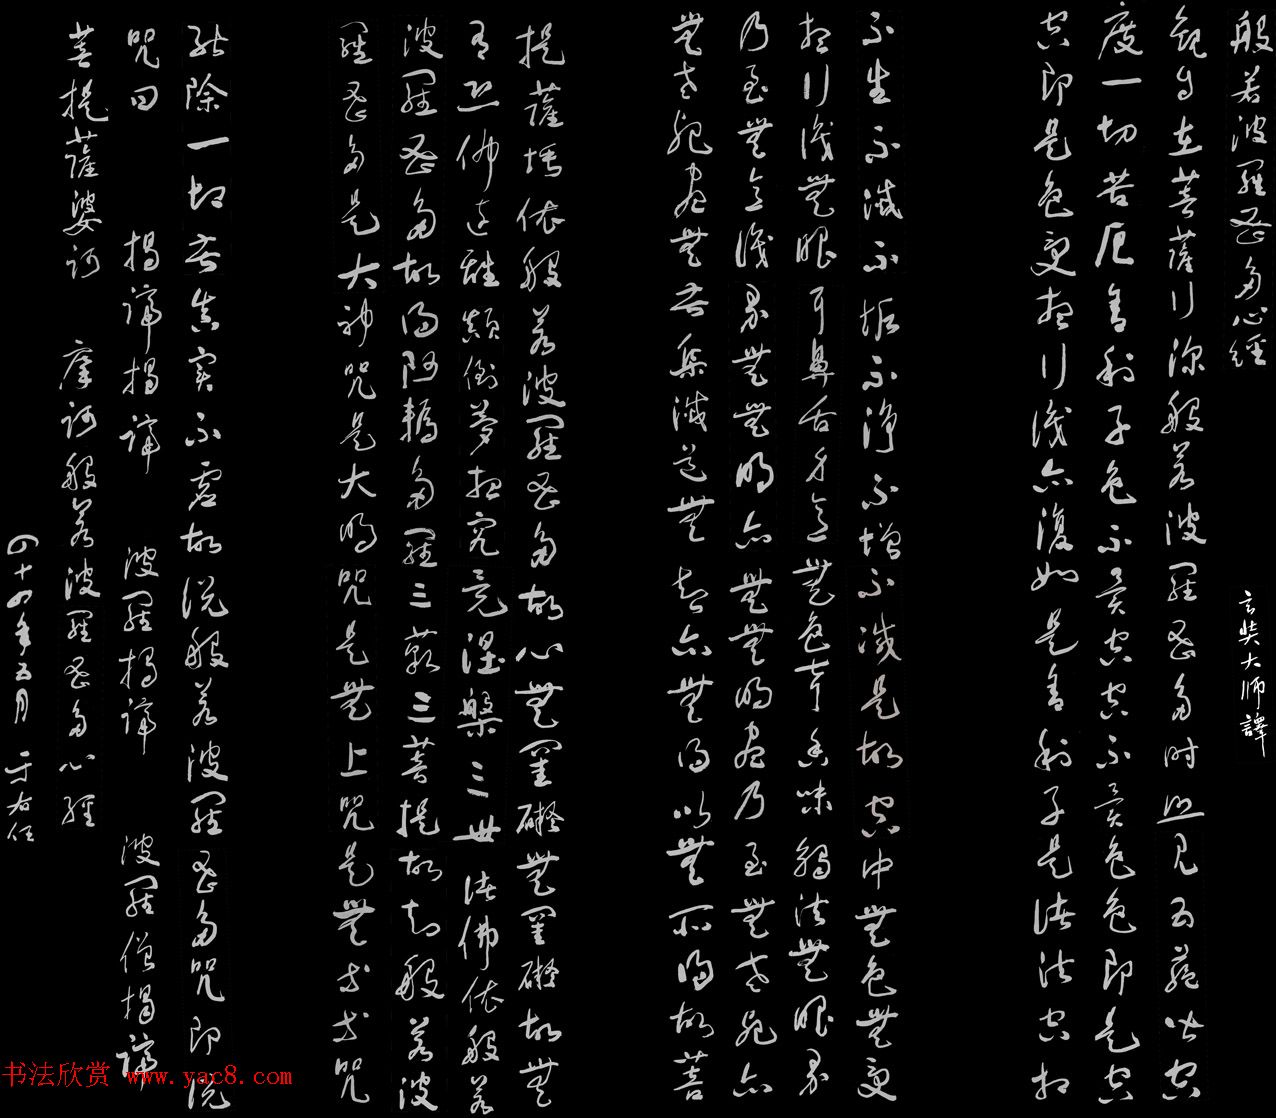 般若波羅蜜多心經
玄奘大師譯
觀自在菩薩行深般若波羅蜜多時照見五蘊皆空
度一切苦厄舍利子色不異空空不異色色即是空
空即是色受想行識亦復如是舍利子是諸法空相
不生不滅不垢不淨不增不減是故空中無色無受
想行識無眼耳鼻舌身意無色聲香味觸法無眼界
乃至無意識界無無明亦無無明盡乃至無老死亦
無老死盡無苦集滅道無智亦無得以無所得故菩
提薩埵依般若波羅蜜多故心無罣礙無罣礙故無
有恐怖遠離顛倒夢想究竟涅槃三世諸佛依般若
波羅蜜多故得阿耨多羅三藐三菩提故知般若波
羅蜜多是大神咒是大明咒是無上咒是無等等咒
能除一切苦真實不虛故說般若波羅蜜多咒即說
咒曰 揭諦揭諦 波羅揭諦 波羅僧揭諦
菩提薩婆訶 摩訶般若波羅蜜多心經
四十四年五月 于右任
书法欣赏 www.yac8.com